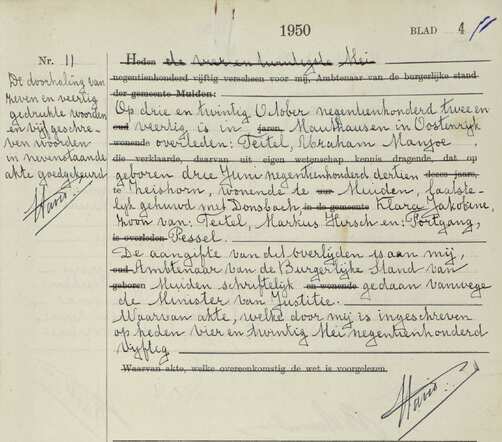 1950
BLAD 4
Nr. 11
De doorhaling van
zeven en veertig
gedrukte woorden
en vijf geschre-
ven woorden
in nevenstaande
akte goedgekeurd
Heden de vier en twintigste Mei
negentienhonderd vijftig verscheen voor mij, Ambtenaar van de burgerlijke stand
der gemeente Muiden:
Op drie en twintig October negentienhonderd twee en
oud veertig is in jaren, Mauthausen in Oostenrijk
wonende overleden: Teitel, Abraham Manjoe
die verklaarde, daarvan uit eigen wetenschap kennis dragende, dat op
geboren drie Juni negentienhonderd dertien dezes jaren,
te Zeishorn, wonende te uur Muiden, laatste-
lijk gehuwd met Donsbach in de gemeente Klara Jakobine,
zoon van: Teitel, Markus Hirsch en: Portgang,
is overleden Pessel.
De aangifte van dit overlijden is aan mij,
oud Ambtenaar van de Burgerlijke Stand van
geboren Muiden schriftelijk en wonende gedaan vanwege
de Minister van Justitie.
Waarvan akte, welke door mij is ingeschreven
op heden vier en twintig Mei negentienhonderd
vijftig
Waarvan akte, welke overeenkomstig de wet is voorgelezen.